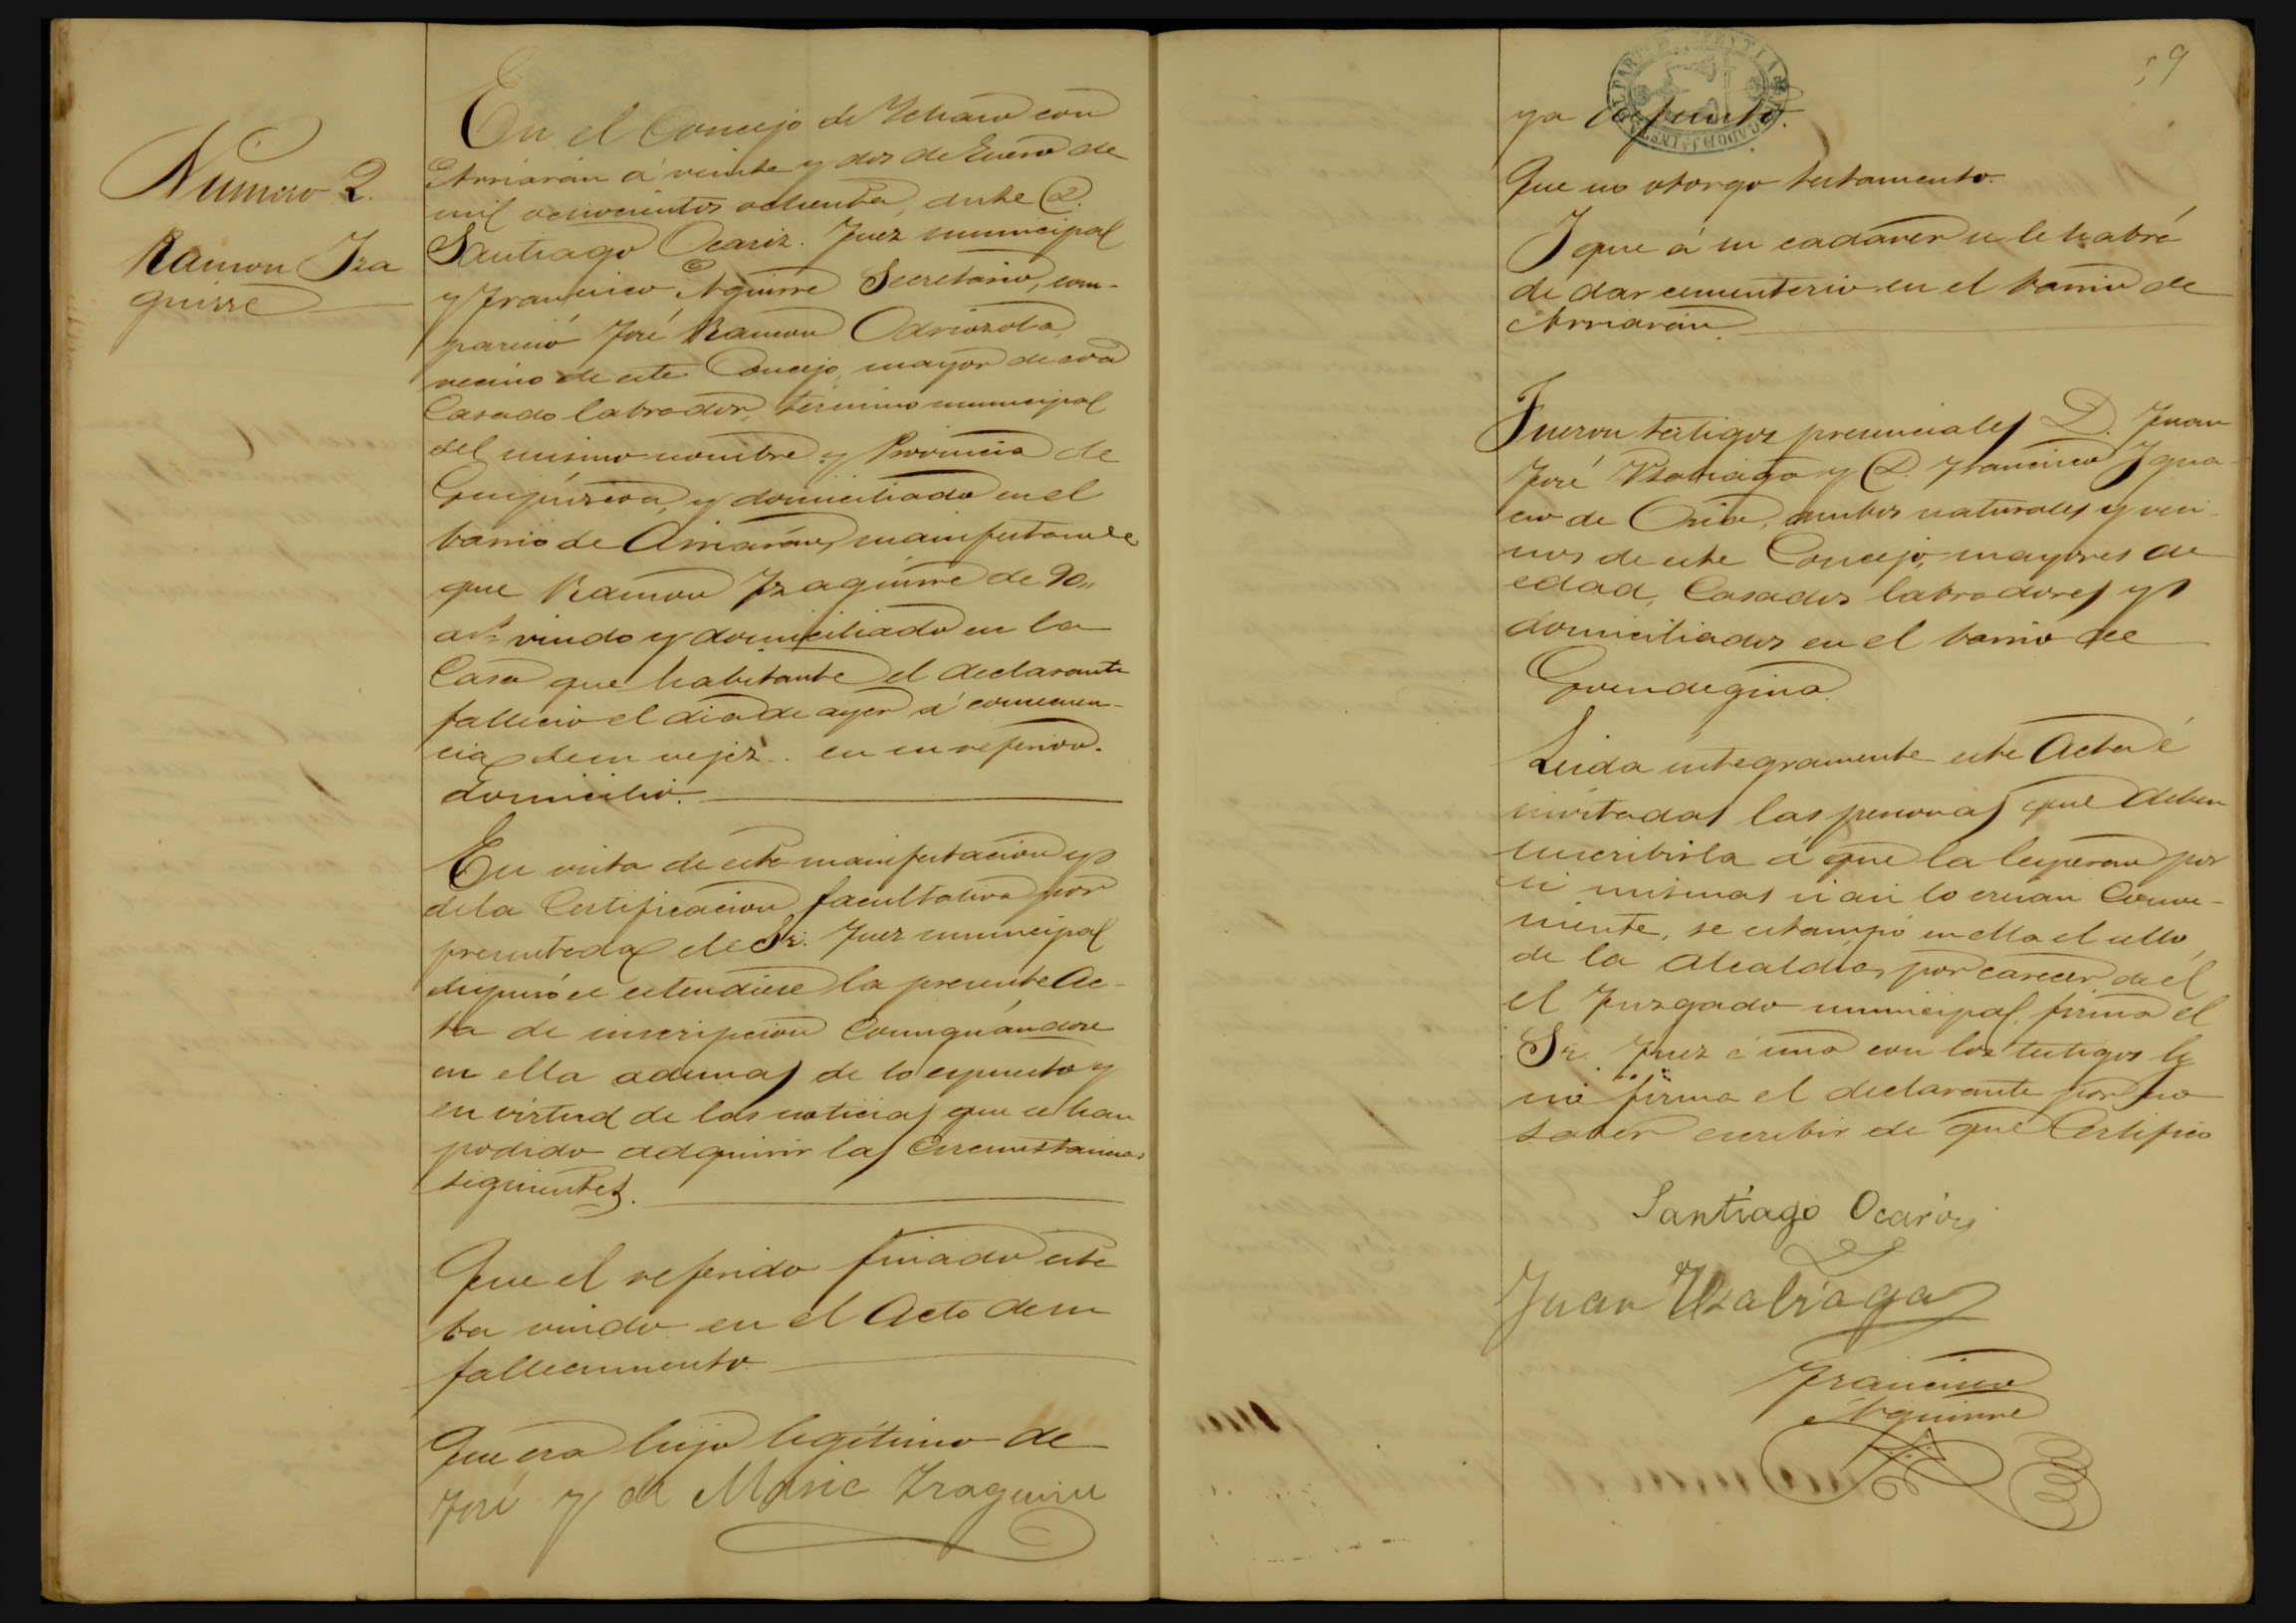 Número 2.
Ramon Iza
guirre
En el Concejo de Ichaso con
Arriarán á veinte y dos de Enero de
mil ochocientos ochenta, ante D.
Santiago Ocariz. Juez municipal
y Francisco Aguirre Secretario, com-
pareció José Ramon Odriozola
vecino de este Concejo, mayor de edad
Casado labrador, termino municipal
del mismo nombre y Provincia de
Guipúzcoa, y domiciliado en el
barrio de Arriarán, manifestando
que Ramon Izaguirre de 90,,
as. viudo y domiciliado en la
Casa que habitante el declarante
fallecio el dia de ayer á consecuen-
cia de su vejez. en su referido.
domicilio.
En vista de esta manifestacion y
de la Certificacion facultativa por
presentada el Sr. Juez municipal
dispuso se estendiese la presente Ac-
ta de inscripcion Consignándose
en ella ademas de lo espuesto y
en virtud de las noticias que se han
podido adquirir las Circunstancias
siguientes.
Que el referido finado esta
ba viudo en el Acto de su
fallecimiento.
Que era hijo legítimo de
José y de Maria Izaguirre
59
ya difunto.
Que no otorgo testamento.
Y que á su cadáver se le habrá
de dar cementerio en el barrio de
Arriarán.
Fueron testigos presenciales D. Juan
José Usabiaga y D. Francisco Igna
cio de Oria, ambos naturales y veci
nos de este Concejo, mayores de
edad, Casados labradores y
domiciliados en el barrio de
Leida integramente este Acta é
invitadas las personas que deben
suscribirla á que la leyeran por
si mismas si asi lo creian Conve-
niente, se estampó en ella el sello
de la Alcaldia, por carecer de él
el Juzgado municipal, firma el
Sr. Juez é una con los testigos y
no firma el declarante por no
saber escribir de que Certifico
Santiago Ocariz
Juan Usabiaga
Francisco
Aguirre